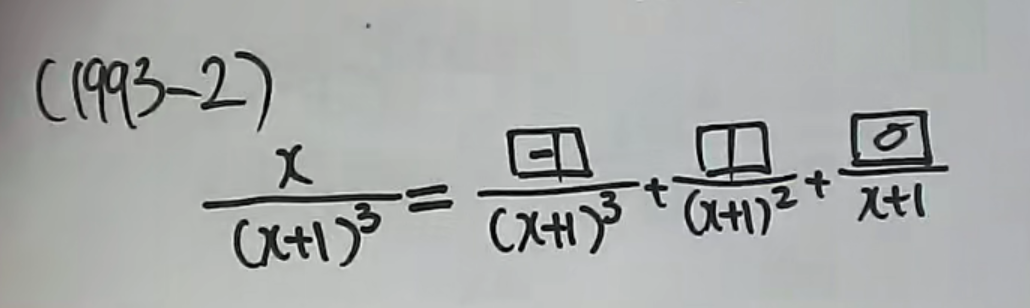 (1993-2)
x/(x+1)^3 = -1/(x+1)^3 + 1/(x+1)^2 + 0/x+1